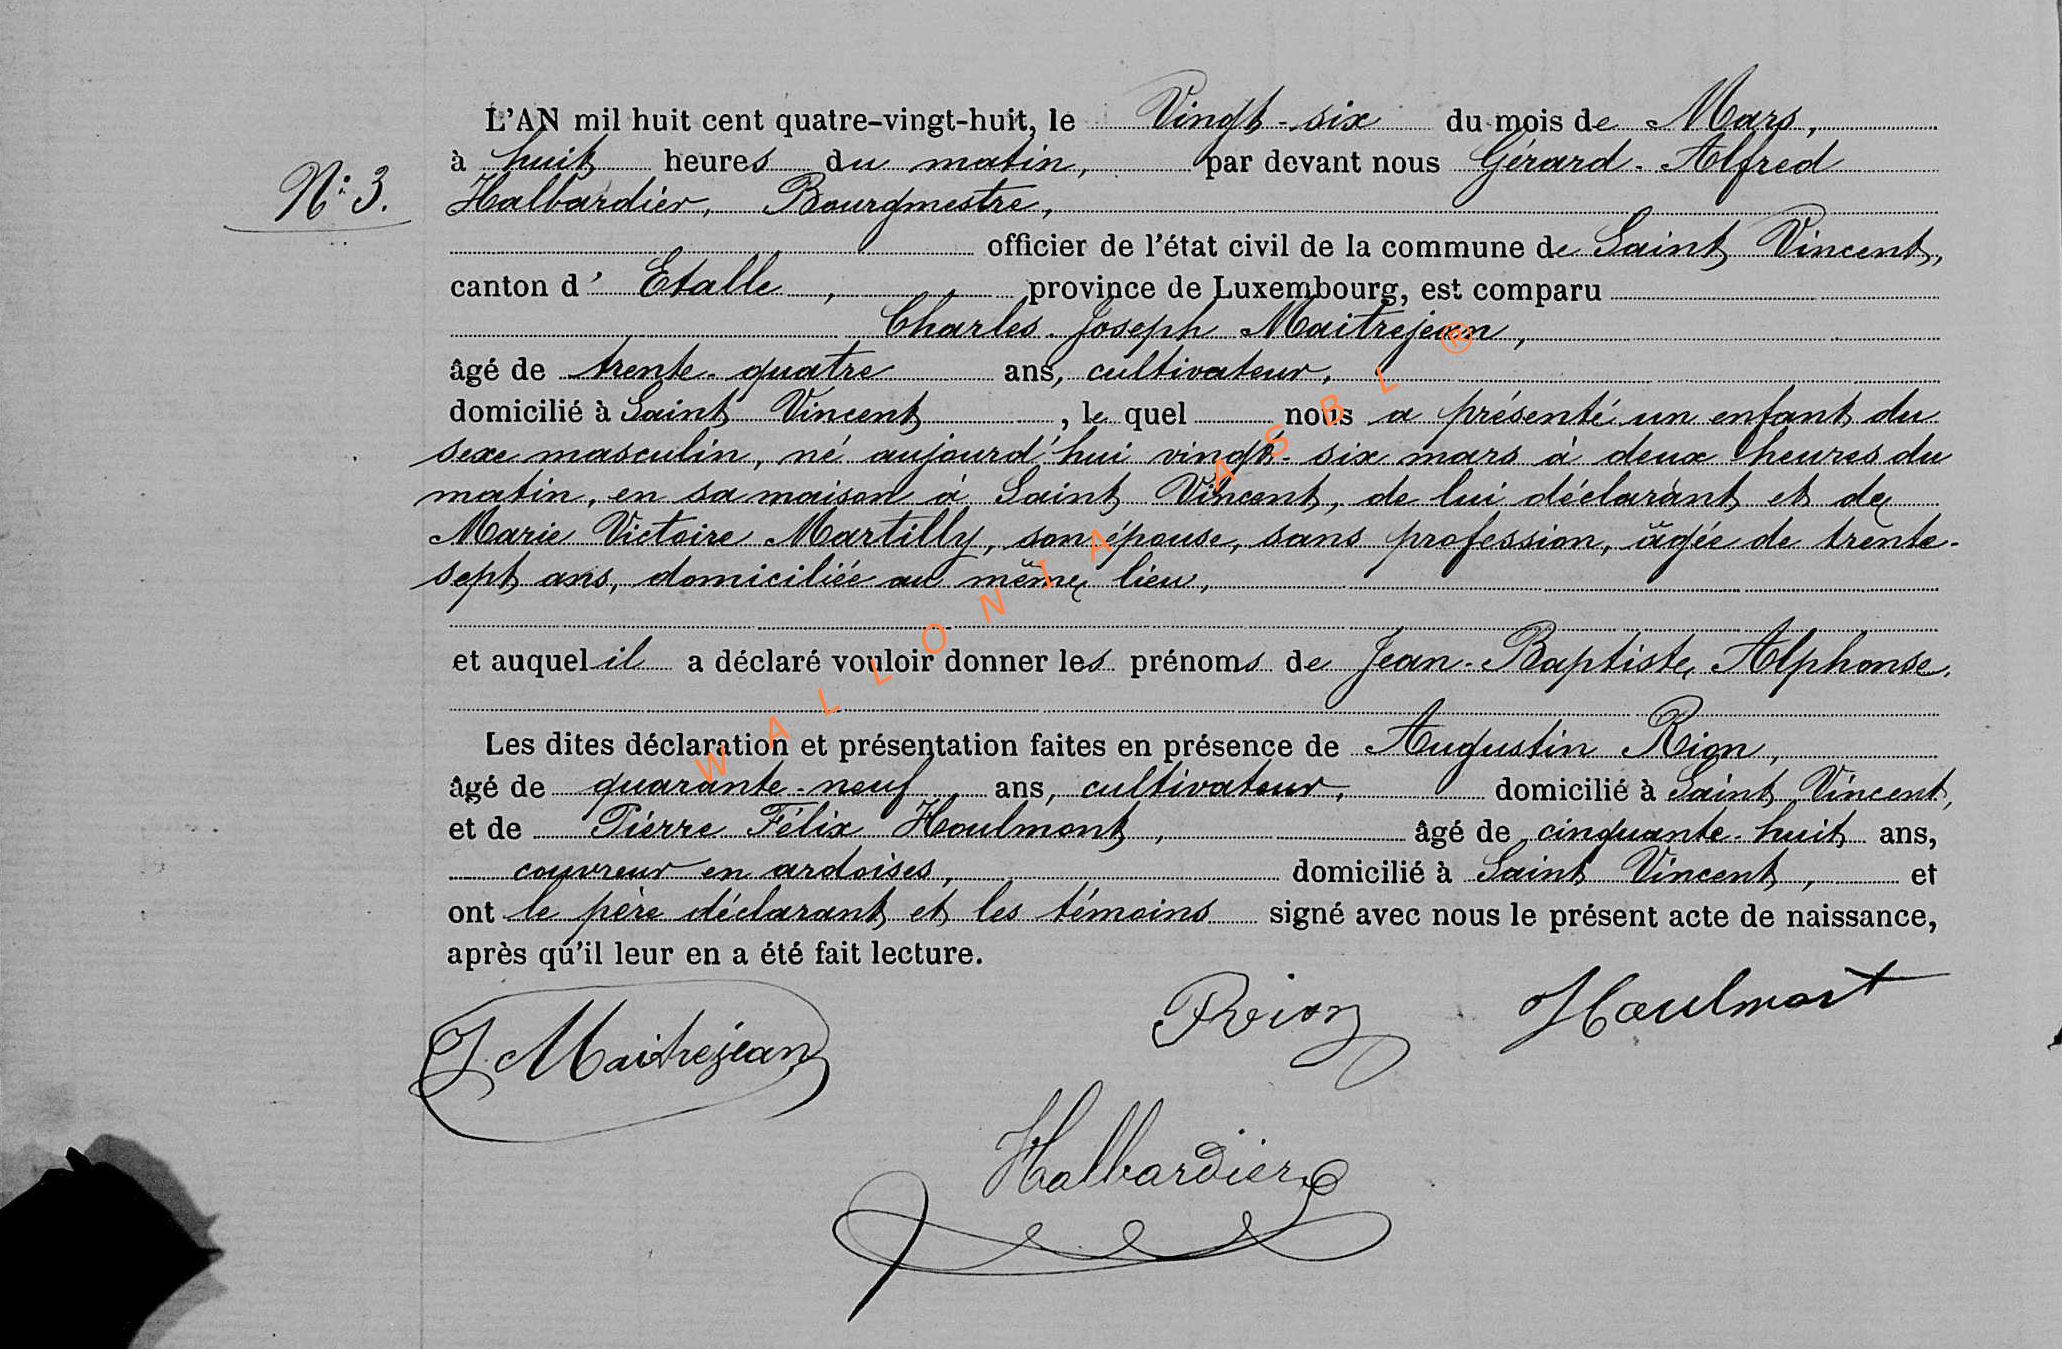 L'AN mil huit cent quatre-vingt-huit, le Vingt-six du mois de Mars,
à huit heures du matin, par devant nous Gérard-Alfred
N° 3.
Halbardier, Bourgmestre,
officier de l'état civil de la commune de Saint Vincent,
canton d' Etalle, province de Luxembourg, est comparu
Charles-Joseph Maitrejean,
âgé de trente-quatre ans, cultivateur,
domicilié à Saint Vincent, le quel nous a présenté un enfant du
sexe masculin, né aujourd'hui vingt-six mars à deux heures du
matin, en sa maison à Saint Vincent, de lui déclarant et de
Marie Victoire Martilly, son épouse, sans profession, âgée de trente-
sept ans, domiciliée au même lieu,
et auquel il a déclaré vouloir donner les prénoms de Jean-Baptiste Alphonse.
Les dites déclaration et présentation faites en présence de Augustin Rion,
âgé de quarante-neuf ans, cultivateur, domicilié à Saint Vincent,
et de Pierre Félix Houlmont, âgé de cinquante-huit ans,
couvreur en ardoises, domicilié à Saint Vincent, et
ont le père déclarant et les témoins signé avec nous le présent acte de naissance,
après qu'il leur en a été fait lecture.
J. Maitrejean Rion Houlmont
Halbardier
WALLONIA ASBL ®